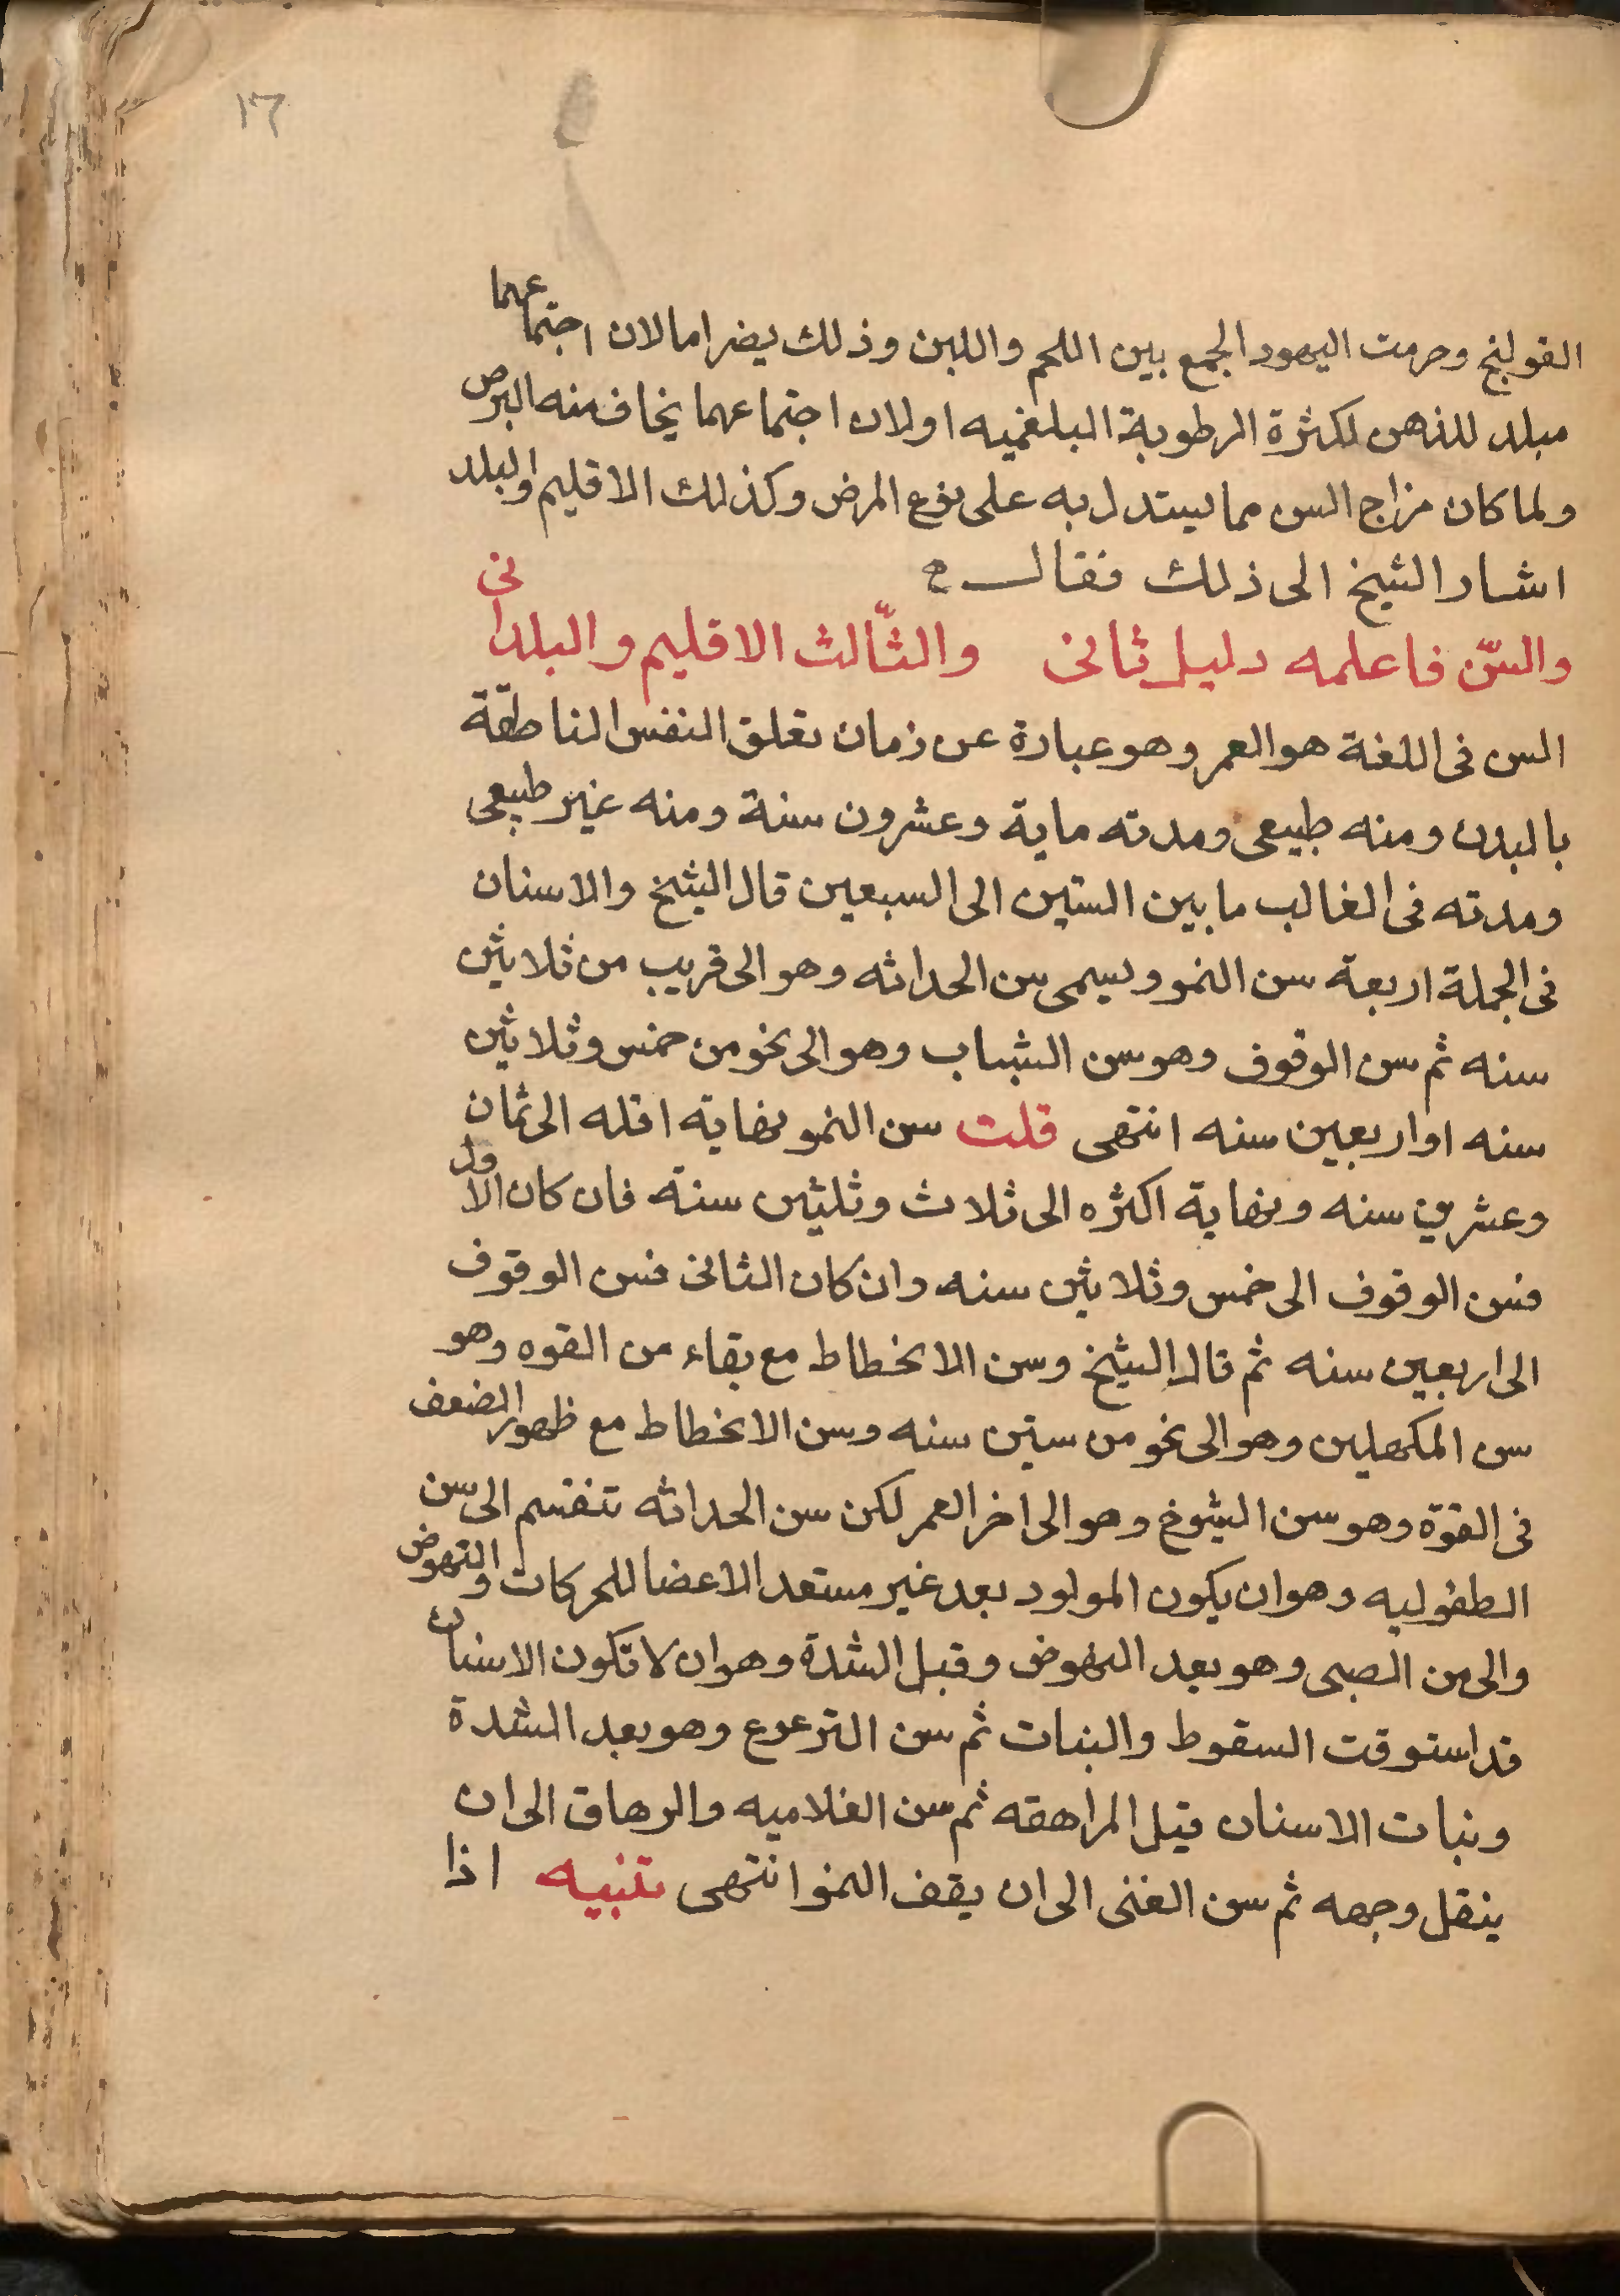 ١٦
القولنج وحرمت اليهود الجمع بين اللحم واللبن وذلك يضر اما لان اجتماعهما
مبلد للذهن لكثرة الرطوبة البلغميه او لان اجتماعهما يخاف منه البرص
ولما كان مزاج السن مما يستدل به على نوع المرض وكذلك الاقليم والبلد
اشار الشيخ الى ذلك فقال
والسّن فاعلمه دليل ثانى والثّالث الاقليم والبلدانى
السن فى اللغة هو العمر وهو عبارة عن زمان تعلق النفس الناطقة
بالبدن ومنه طبيعى ومدته ماية وعشرون سنة ومنه غير طبيعى
ومدته فى الغالب ما بين الستين الى السبعين قال الشيخ والاسنان
فى الجملة اربعة سن النمو ويسمى سن الحداثه وهو الى قريب من ثلاثين
سنه ثم سن الوقوف وهو سن الشباب وهو الى نحو من خمس وثلاثين
سنه او اربعين سنه انتهى قلت سن النمو نهاية اقله الى ثمان
وعشرين سنه ونهاية اكثره الى ثلاث وثلثين سنة فان كان الاول
فسن الوقوف الى خمس وثلاثين سنه وان كان الثانى فسن الوقوف
الى اربعين سنه ثم قال الشيخ وسن الانحطاط مع بقاء من القوه وهو
سن المكهلين وهو الى نحو من ستين سنه وسن الانحطاط مع ظهور الضعف
فى القوة وهو سن الشيوخ وهو الى اخر العمر لكن سن الحداثه تنقسم الى سن
الطفوليه وهو ان يكون المولود بعد غير مستعد الاعضا للحركات والنهوض
والى سن الصبى وهو بعد النهوض وقبل الشدة وهو ان لا تكون الاسنان
قد استوقت السقوط والنبات ثم سن الترعرع وهو بعد الشدة
ونبات الاسنان قبل المراهقه ثم سن الغلاميه والرهاق الى ان
ينقل وجهه ثم سن الفتى الى ان يقف النمو انتهى تنبيه اذا